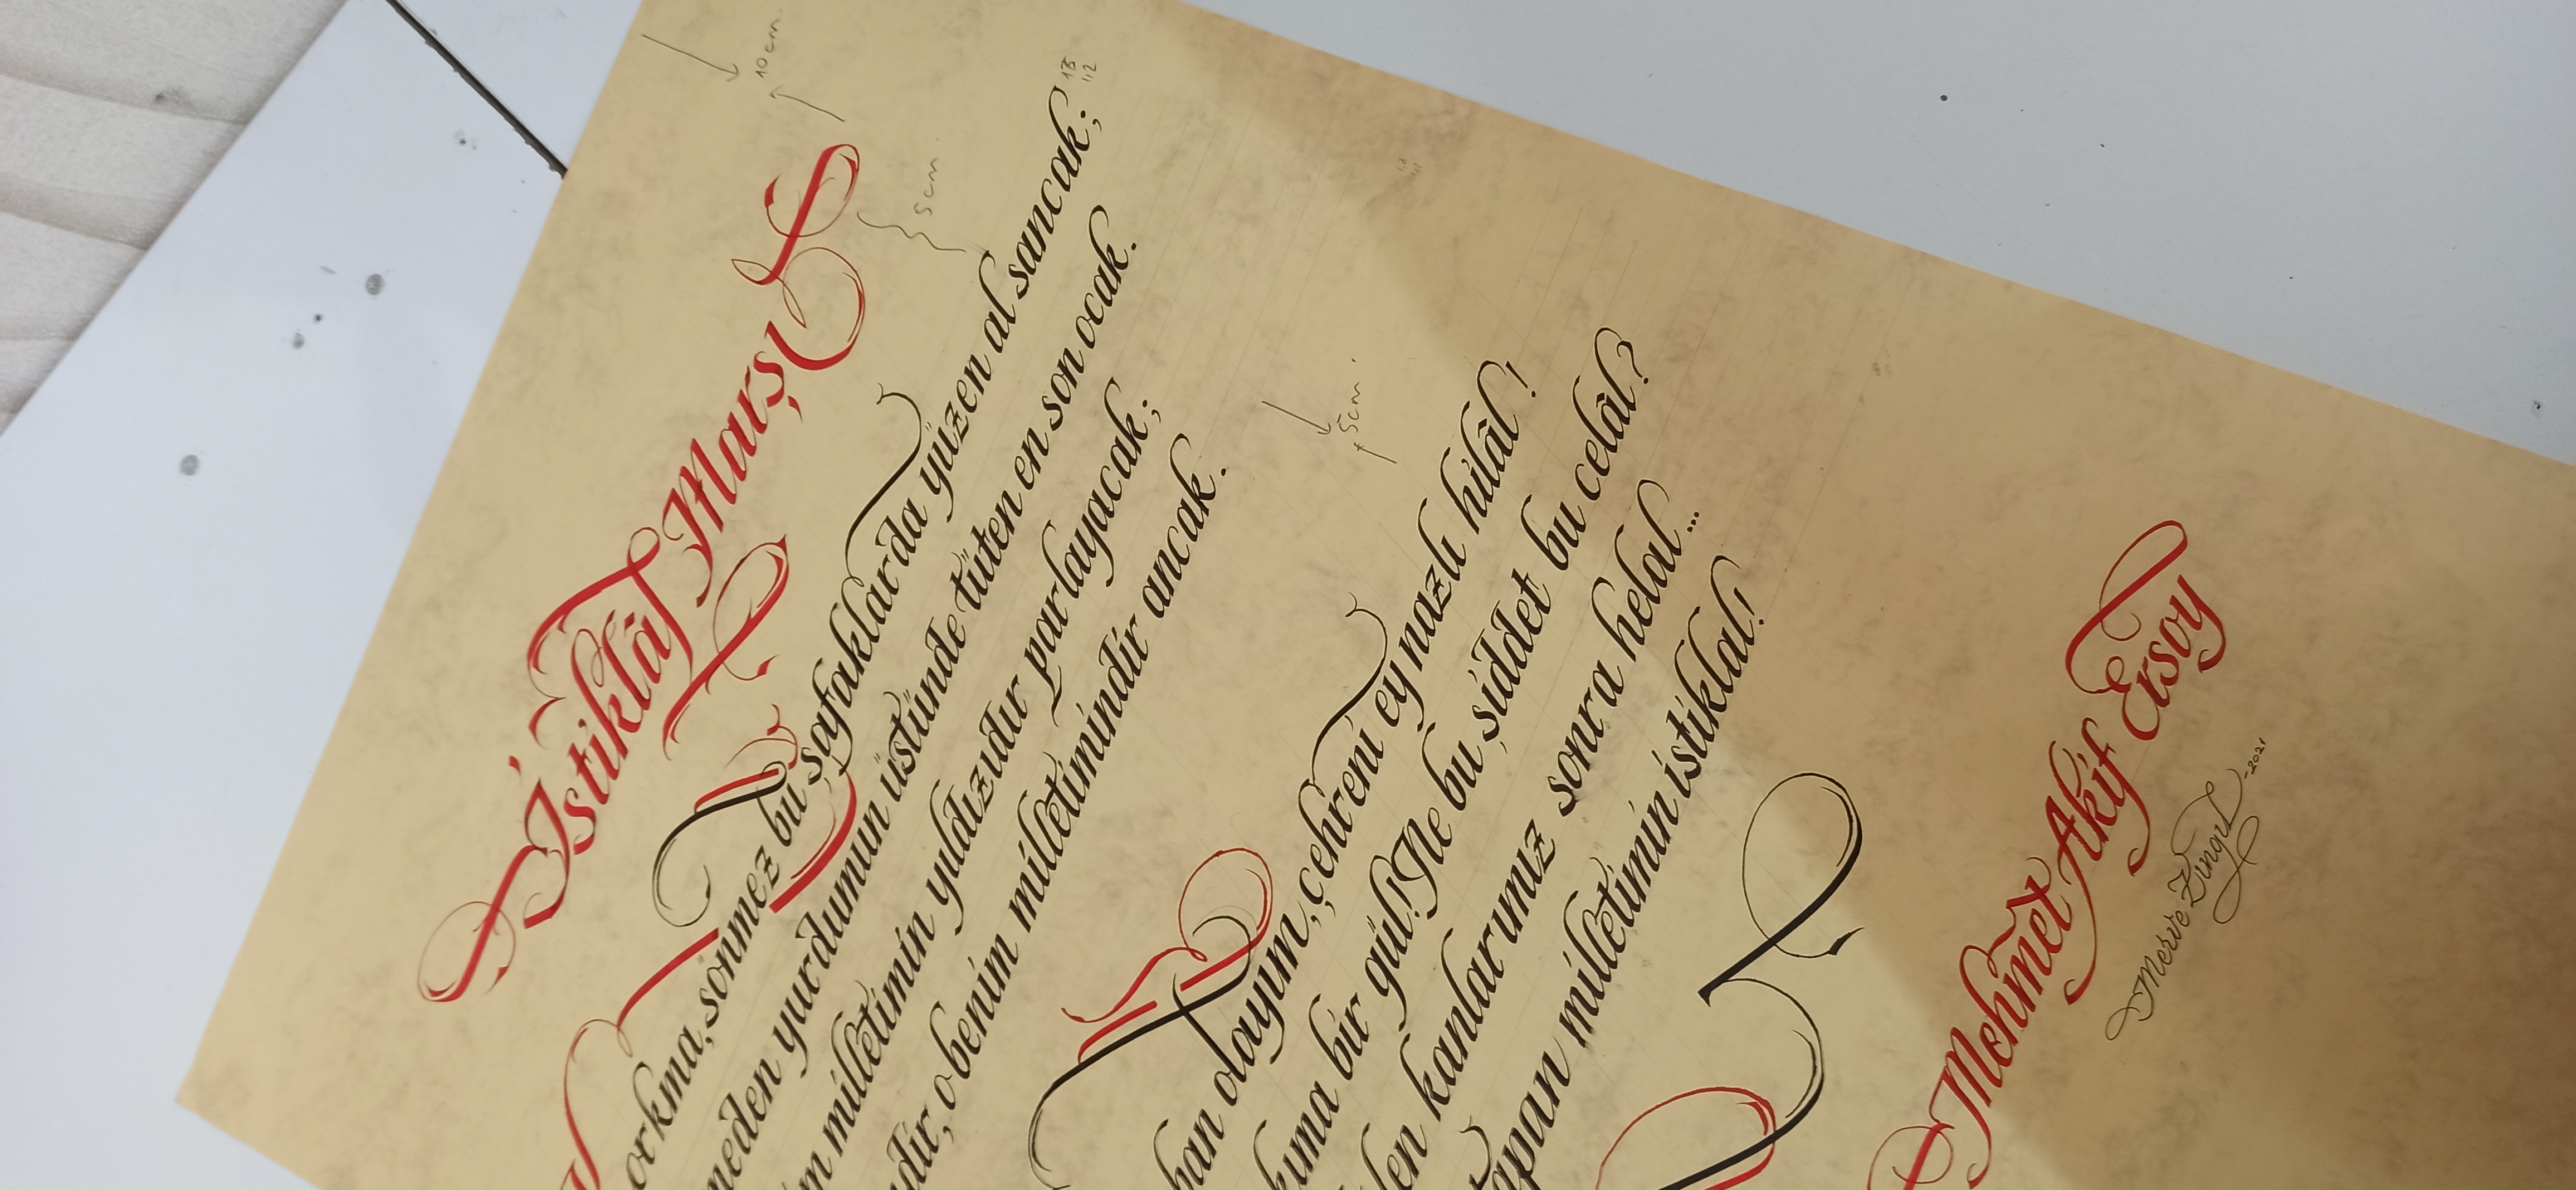 İstiklâl Marşı
orkma, sönmez bu şafaklarda yüzen al sancak;
meden yurdumun üstünde tüten en son ocak.
m milletimin yıldızıdır parlayacak;
dir, o benim milletimindir ancak.
ban olayım, çehreni ey nazlı hilâl!
kıma bir gül! Ne bu şiddet bu celâl?
len kanlarımız sonra helal...
tapan milletimin istiklal!
Mehmet Akif Ersoy
Merve -2021
10cm.
5cm.
5cm.